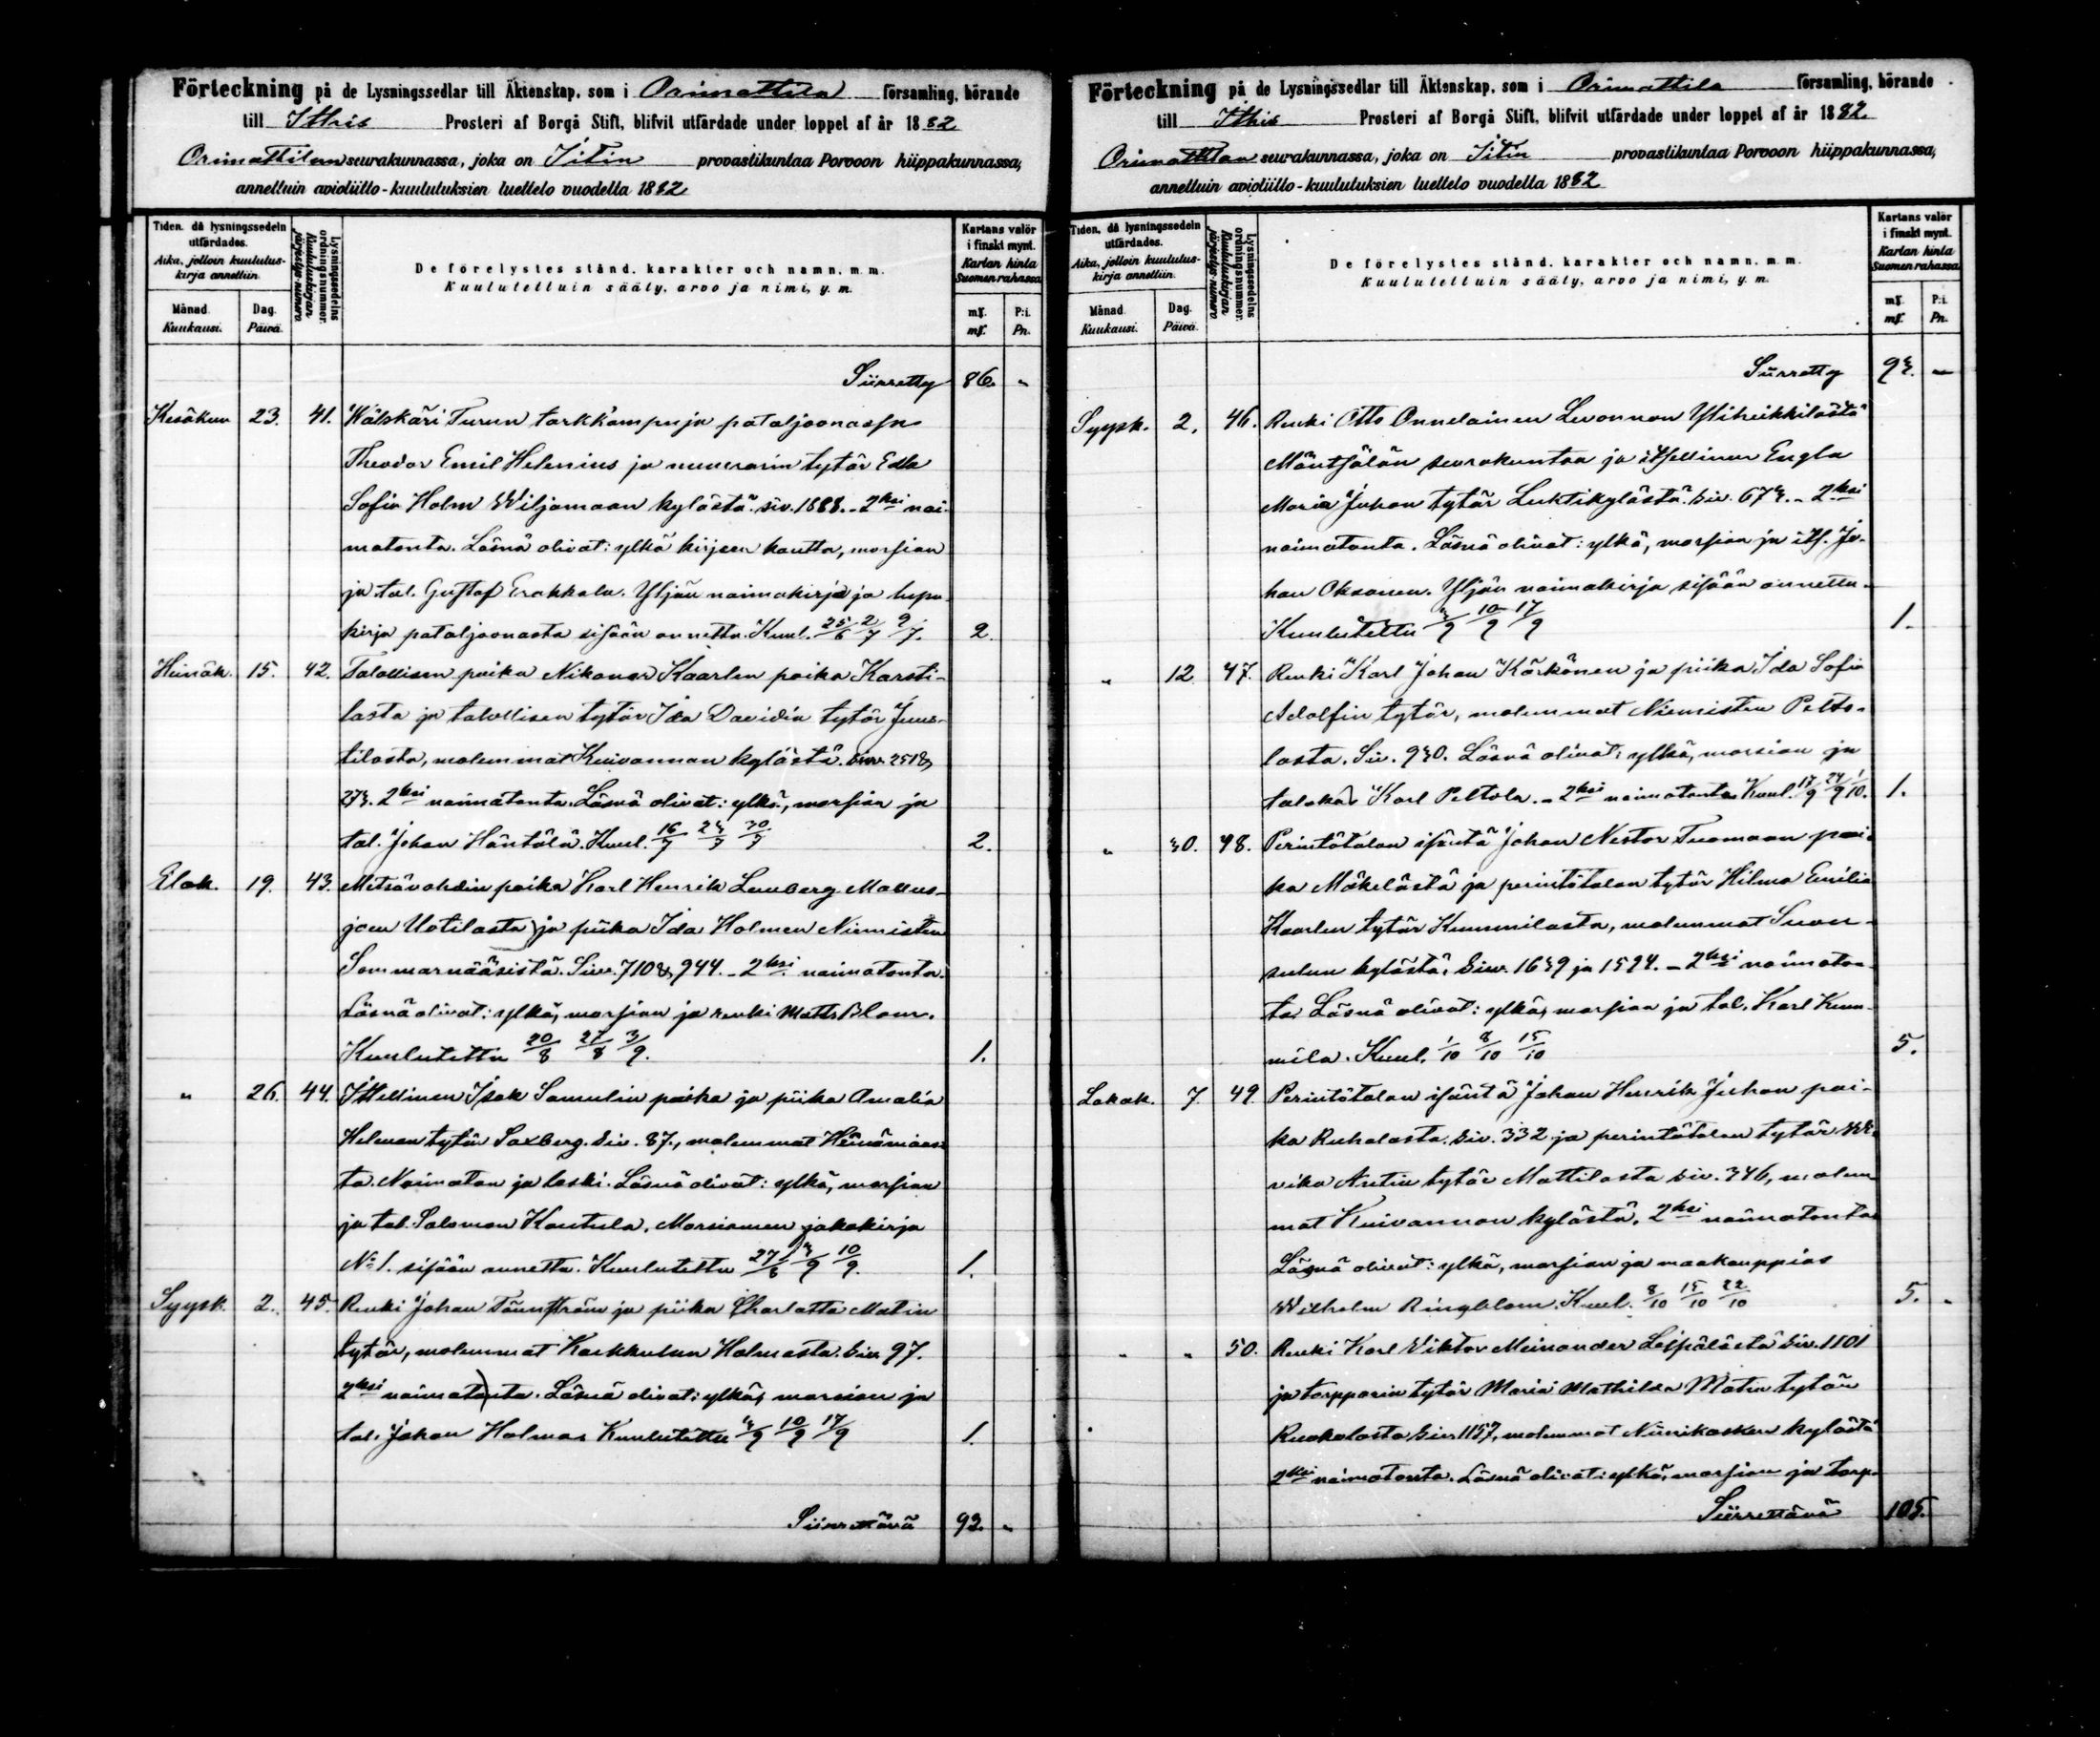 Förteckning på de Lysningssedlar till Äktenskap, som i Orimattila församling, hörande
till Ithis Prosteri af Borgå Stift, blifvit utfärdade under loppet af år 1882
Orimattilan seurakunnassa, joka on Iitin provastikuntaa Porvoon hiippakunnassa,
annettuin avioliitto-kuulutuksien luettelo vuodelta 1882
Tiden, då lysningssedeln utfärdades.
Aika, jolloin kuulutus-kirja annettiin.
Månad. Kuukausi.
Dag. Päivä.
Lysningssedelns ordningsnummer.
Kuulutuskirjan järjestys-numero
De förelystes stånd, karakter och namn, m. m.
Kuulutettuin sääty, arvo ja nimi, y. m.
Kartans valör i finskt mynt.
Kartan hinta Suomen rahassa
mf. P:i.
mf. Pn.
Siirretty 86. "
Kesäkuu 23. 41. Wälskäri Turun tarkk'ampuja pataljoonassa
Theodor Emil Helenius ja numerarin tytär Edla
Sofia Holm Wiljamaan kylästä. siv. 1888. - 2ksi nai-
matonta. Läsnä olivat: ylkä kirjeen kautta, morsian
ja tal. Gustaf Erakkala. Yljän naimakirja ja lupa-
kirja pataljoonasta sisään annettu. Kuul. 25/6 2/7 9/7. 2.
Heinäk. 15. 42. Talollisen poika Nikanor Kaarlen poika Karsti-
lasta ja talollisen tytär Ida Davidin tytär Juus-
tilasta, molemmat Kuivannon kylästä. Siv. 251 &
273. 2ksi naimatonta. Läsnä olivat: ylkä, morsian ja
tal. Johan Häntälä. Kuul. 16/7 23/7 30/7 2.
Elok. 19. 43. Metsävahdin poika Karl Henrik Lunberg Mallus-
joen Uotilasta ja piika Ida Holmen Niemisten
Sommarnääsistä. Siv. 710 & 944. - 2ksi naimatonta.
Läsnä olivat: ylkä, morsian ja renki Matts Blom.
Kuulutettu 20/8 27/8 3/9. 1.
" 26. 44. Itsellinen Isak Samulin poika ja piika Amalia
Helman tytär Saxberg. Siv. 87., molemmat Heinämaas-
ta. Naimaton ja leski. Läsnä olivat: ylkä, morsian
ja tal. Salomon Kautula. Morsiamen jakokirja
No 1. sisään annettu. Kuulutettu 27/8 3/9 10/9. 1.
Syysk. 2. 45. Renki Johan Tännström ja piika Charlotta Matin
tytär, molemmat Karkkulan Holmasta. Siv. 97.
2ksi naimatonta. Läsnä olivat: ylkä, morsian ja
tal. Johan Holmas Kuulutettu 3/9 10/9 17/9 1.
Siirrettävä 93. "
Förteckning på de Lysningssedlar till Äktenskap, som i Orimattila församling, hörande
till Ithis Prosteri af Borgå Stift, blifvit utfärdade under loppet af år 1882.
Orimattilan seurakunnassa, joka on Iitin provastikuntaa Porvoon hiippakunnassa,
annettuin avioliitto-kuulutuksien luettelo vuodelta 1882
Tiden, då lysningssedeln utfärdades.
Aika, jolloin kuulutus-kirja annettiin.
Månad. Kuukausi.
Dag. Päivä.
Lysningssedelns ordningsnummer.
Kuulutuskirjan järjestys-numero
De förelystes stånd, karakter och namn, m. m.
Kuulutettuin sääty, arvo ja nimi, y. m.
Kartans valör i finskt mynt.
Kartan hinta Suomen rahassa
mf. P:i.
mf. Pn.
Siirretty 93. -
Syysk. 2. 46. Renki Otto Onnelainen Levannon Yliheikkilästä
Mäntsälän seurakuntaa ja itsellinen Engla
Maria Juhan tytär Luhtikylästä. Siv. 673. - 2ksi
naimatonta. Läsnä olivat: ylkä, morsian ja its. Jo-
han Oksanen. Yljän naimakirja sisään annettu.
Kuulutettu 3/9 10/9 17/9 1.
" 12 47. Renki Karl Johan Körkönen ja piika Ida Sofia
Adolfin tytär, molemmat Niemisten Pelto-
lasta. Siv. 930. Läsnä olivat: ylkä, morsian ja
talokas Karl Peltola. - 2ksi naimatonta Kuul. 17/9 24/9 1/10. 1.
" 30. 48. Perintötalon isäntä Johan Nestor Tuomaan poi-
ka Mäkelästä ja perintötalon tytär Hilma Emilia
Kaarlen tytär Kummilasta, molemmat Suon-
sulun kylästä, Siv. 1639 ja 1594. - 2ksi naimaton-
ta. Läsnä olivat: ylkä, morsian ja tal. Karl Kum-
mila. Kuul. 1/10 8/10 15/10 5.
Lokak. 7. 49. Perintötalon isäntä Johan Henrik Juhan poi-
ka Ruhalasta. Siv. 332 ja perintötalon tytär Ul-
rika Antin tytär Mattilasta siv. 346, molem-
mat Kuivannon kylästä, 2ksi naimatonta
Läsnä olivat: ylkä, morsian ja maakauppias
Wilhelm Ringblom. Kuul. 8/10 15/10 22/10 5. "
" " 50. Renki Karl Viktor Meinander Leppälästä siv. 1101
ja torpparin tytär Maria Mathilda Matin tytär
Ruokolasta Siv. 1157, molemmat Niinikosken kylästä
2ksi naimatonta. Läsnä olivat: ylkä, morsian ja torp-
Siirrettävä 105.